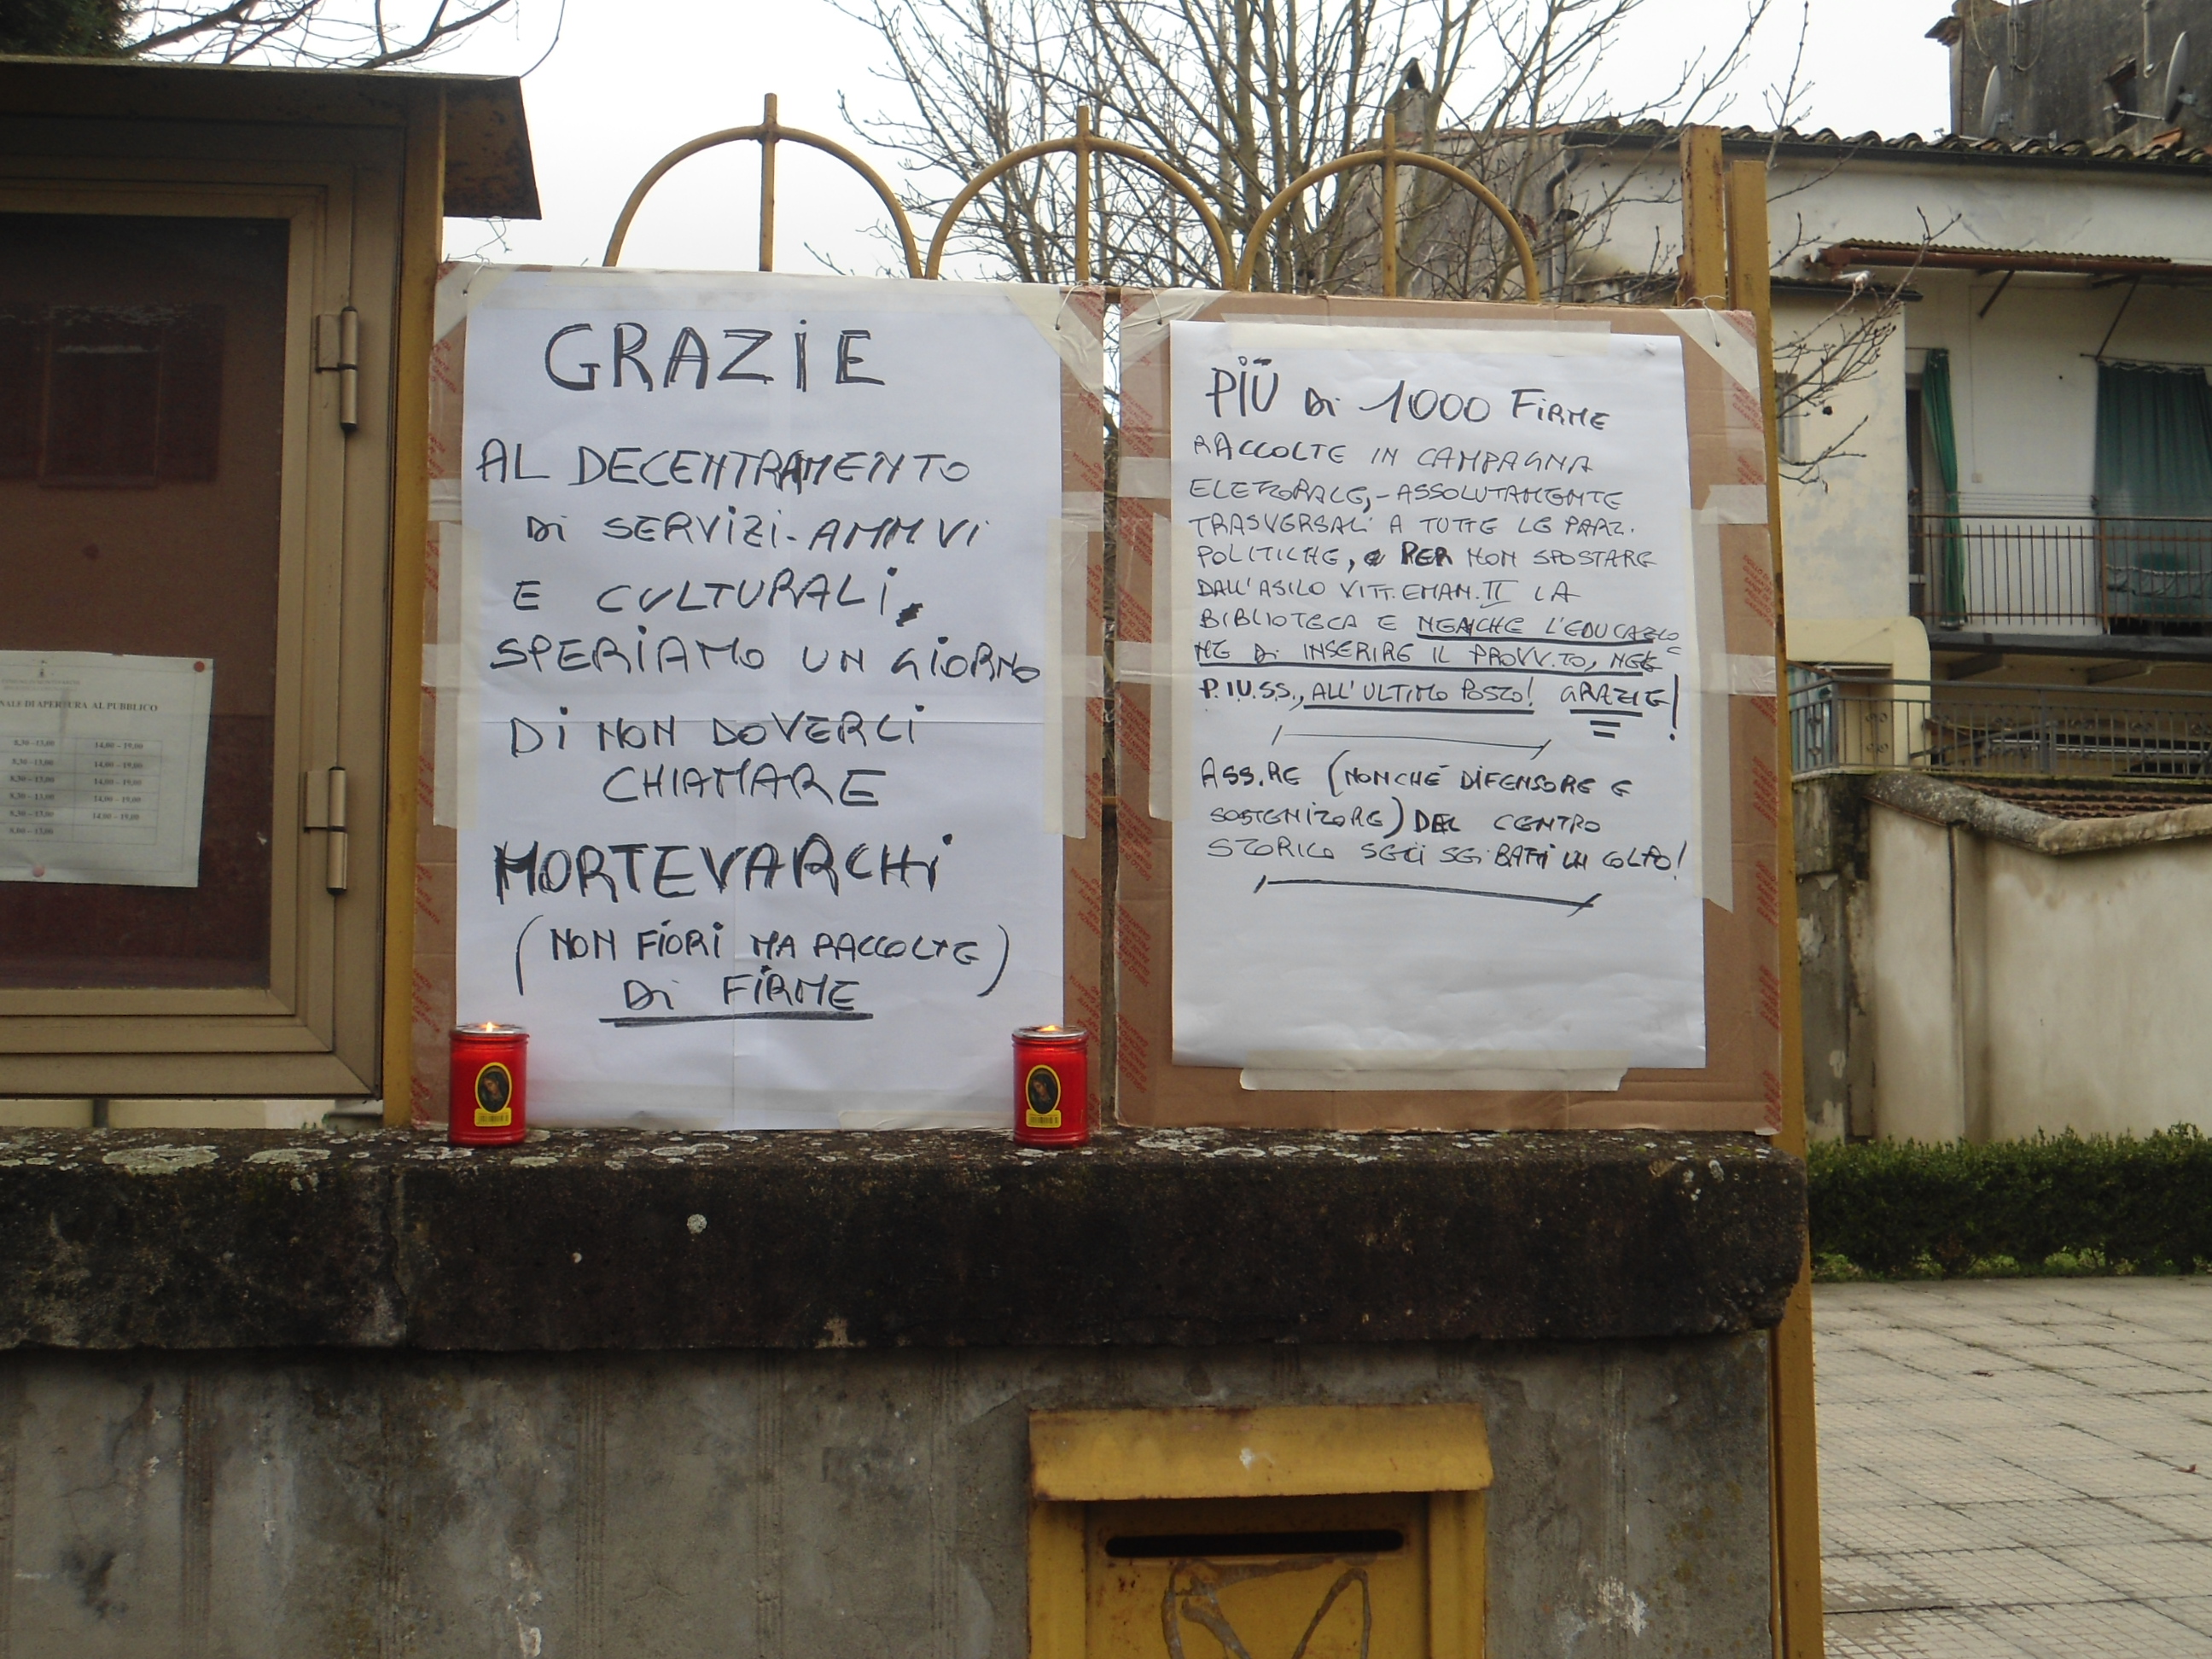 NALE DI APERTURA AL PUBBLICO
8,30 – 13,00 14,00 – 19,00
8,30 – 13,00 14,00 – 19,00
8,30 – 13,00 14,00 – 19,00
8,30 – 13,00 14,00 – 19,00
8,30 – 13,00 14,00 – 19,00
8,00 – 13,00
GRAZIE
AL DECENTRAMENTO
DI SERVIZI-AMM.VI
E CULTURALI,
SPERIAMO UN GIORNO
DI NON DOVERCI
CHIAMARE
MORTEVARCHI
(NON FIORI MA RACCOLTE)
DI FIRME
PIÙ DI 1000 FIRME
RACCOLTE IN CAMPAGNA
ELETTORALE,-ASSOLUTAMENTE
TRASVERSALI A TUTTE LE PARTI
POLITICHE, PER NON SPOSTARE
DALL'ASILO VITT.EMAN.II LA
BIBLIOTECA E NEANCHE L'EDUCAZIO
NE DI INSERIRE IL PROVV.TO, NEL
P.IU.SS., ALL'ULTIMO POSTO! GRAZIE!
ASS.RE (NONCHÉ DIFENSORE E
SOSTENITORE) DEL CENTRO
STORICO SE CI SEI BATTI UN COLPO!